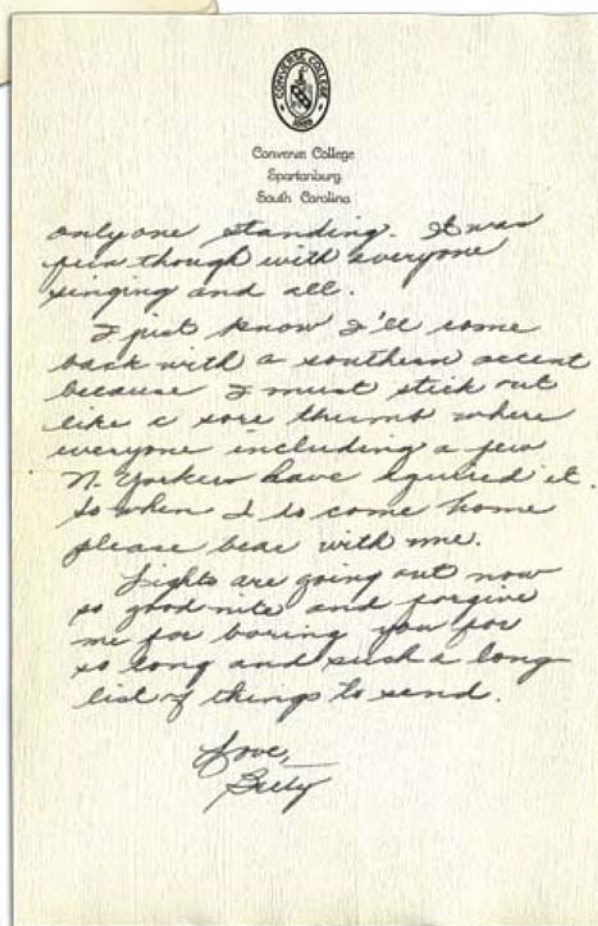 CONVERSE COLLEGE
1889
Converse College
Spartanburg
South Carolina
only one standing. It was
fun though with everyone
singing and all.
I just know I'll come
back with a southern accent
because I must stick out
like a sore thumb where
everyone including a few
N. Yorkers have aquired it.
So when I do come home
please bear with me.
Lights are going out now
so good nite and forgive
me for boring you for
so long and such a long
list of things to send.
Love,